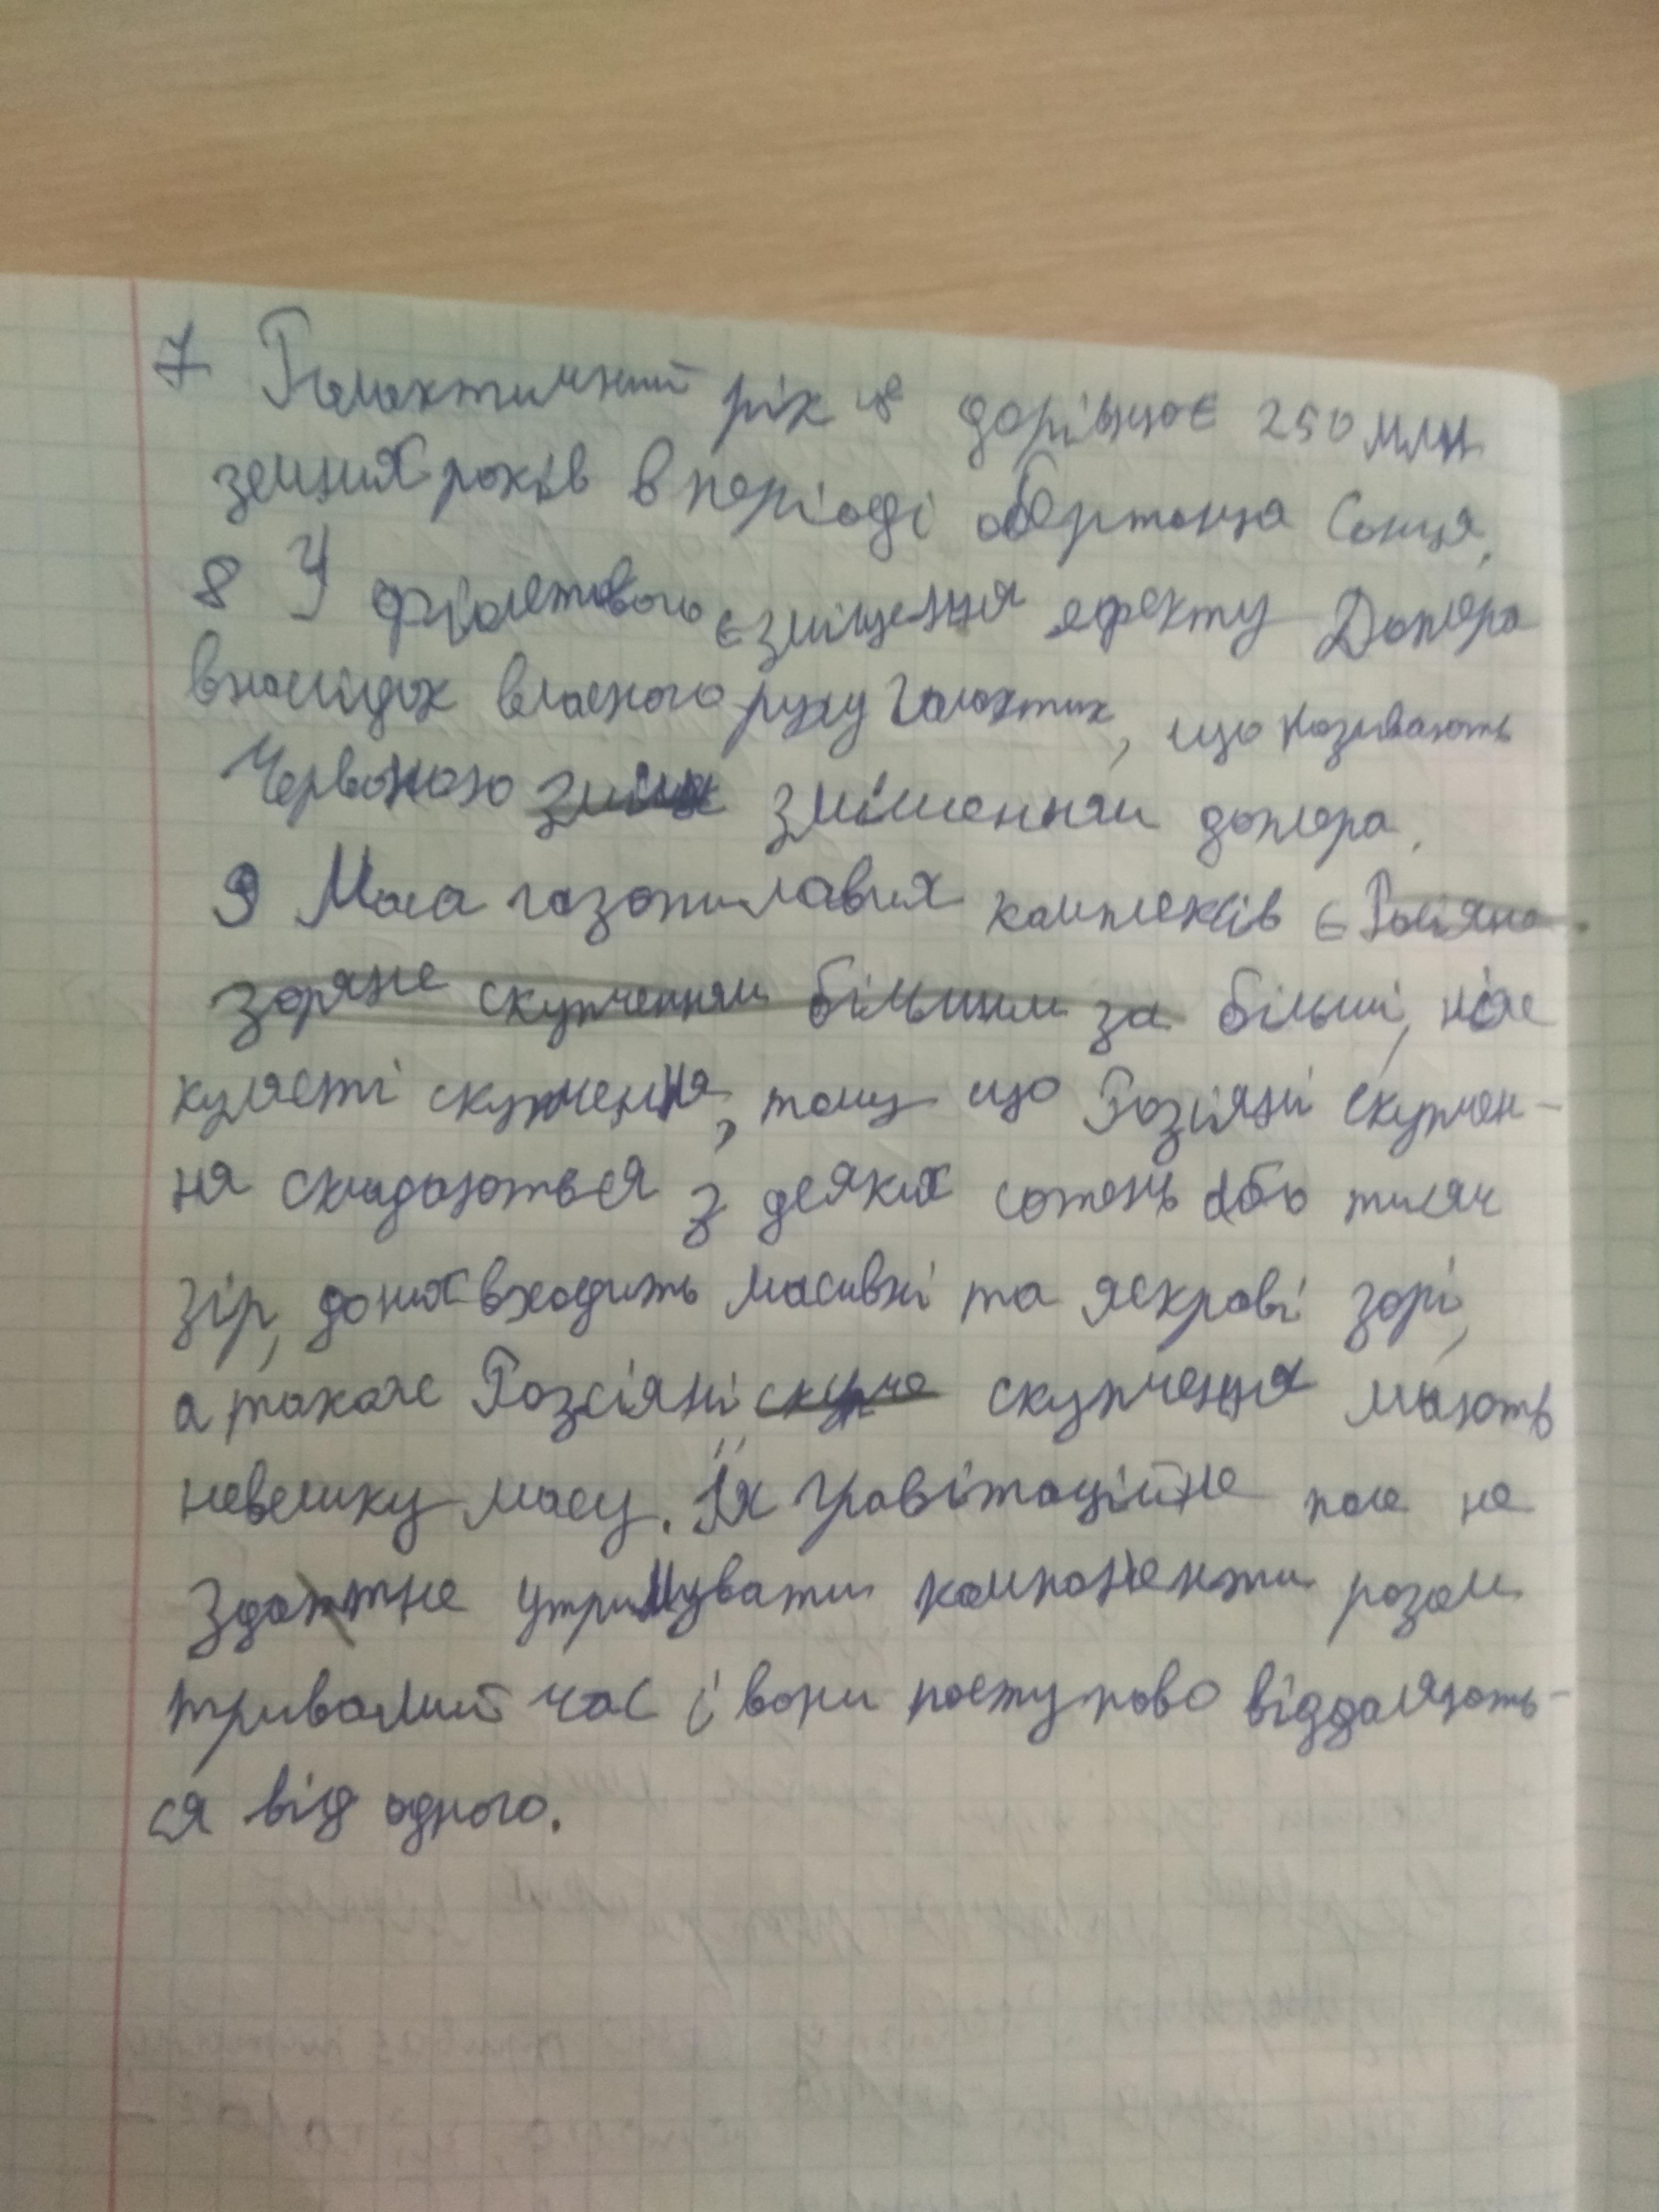 7 Галактичний рік це дорівнює 250 млн
земних років в періоді обертання Сонця,
8 У фіолетового є зміщення ефекту Доплера
внаслідок власного руху галактик, що називають
Червоною зміщенням доплера.
9 Маса газопилавих комплексів є Росіяно
зоряне скупченням більшим за більші, ніж
кулясті скупчення, тому що Розсіяні скупчен-
ня складаються з деяких сотень або тисяч
зір, до них входить масивні та яскраві зорі,
а також Розсіяні скупче скупчення мають
невелику масу. Їх гравітаційне поле не
здатне утримувати компоненти разом
тривалий час і вони поступово віддаляють-
ся від одного.